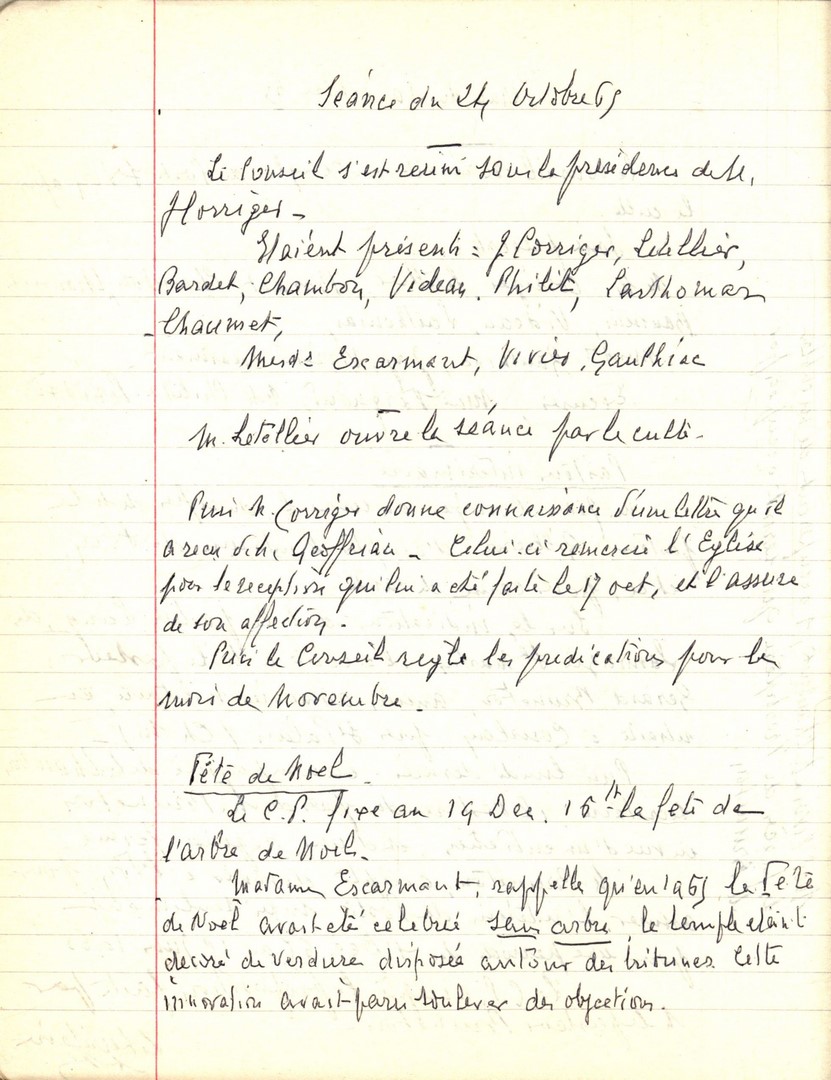 Séance du 24 Octobre 65
Le Conseil s'est reuni sous la présidence de M.
J Corriger -
Etaient présents : J. Corriger, Letellier,
Bardet, Chambon, Videau, Philit, Larthomas
Chaumet,
Mesds Escarmant, Vivier, Gauthier
M. Letellier ouvre la séance par le culte.
Puis M. Corriger donne connaissance d'une lettre qu'il
a recu de M. Geoffrian - Celui-ci remercie l'Eglise
pour la reception qui lui a été faite le 17 oct, et l'assure
de son affection.
Puis le Conseil regle les predications pour le
mois de Novembre -
Fête de Noel -
Le C.P. fixe au 19 Dec. 16 h la fete de
l'arbre de Noel -
Madame Escarmant, rappelle qu'en 1965 la Fete
de Noël avait eté celebrée sans arbre, le temple etant
decoré de verdure disposée autour des tribunes. Cette
innovation avait paru soulever des objections.